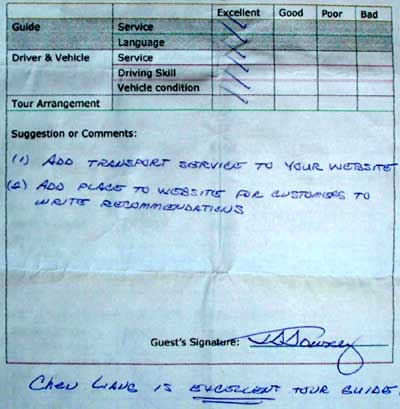 Excellent Good Poor Bad
Guide Service
Language
Driver & Vehicle Service
Driving Skill
Vehicle condition
Tour Arrangement
Suggestion or Comments:
(1) ADD TRANSPORT SERVICE TO YOUR WEBSITE
(2) ADD PLACE TO WEBSITE FOR CUSTOMERS TO
WRITE RECOMMENDATIONS
Guest's Signature:
CHEN LIANG IS EXCELLENT TOUR GUIDE.